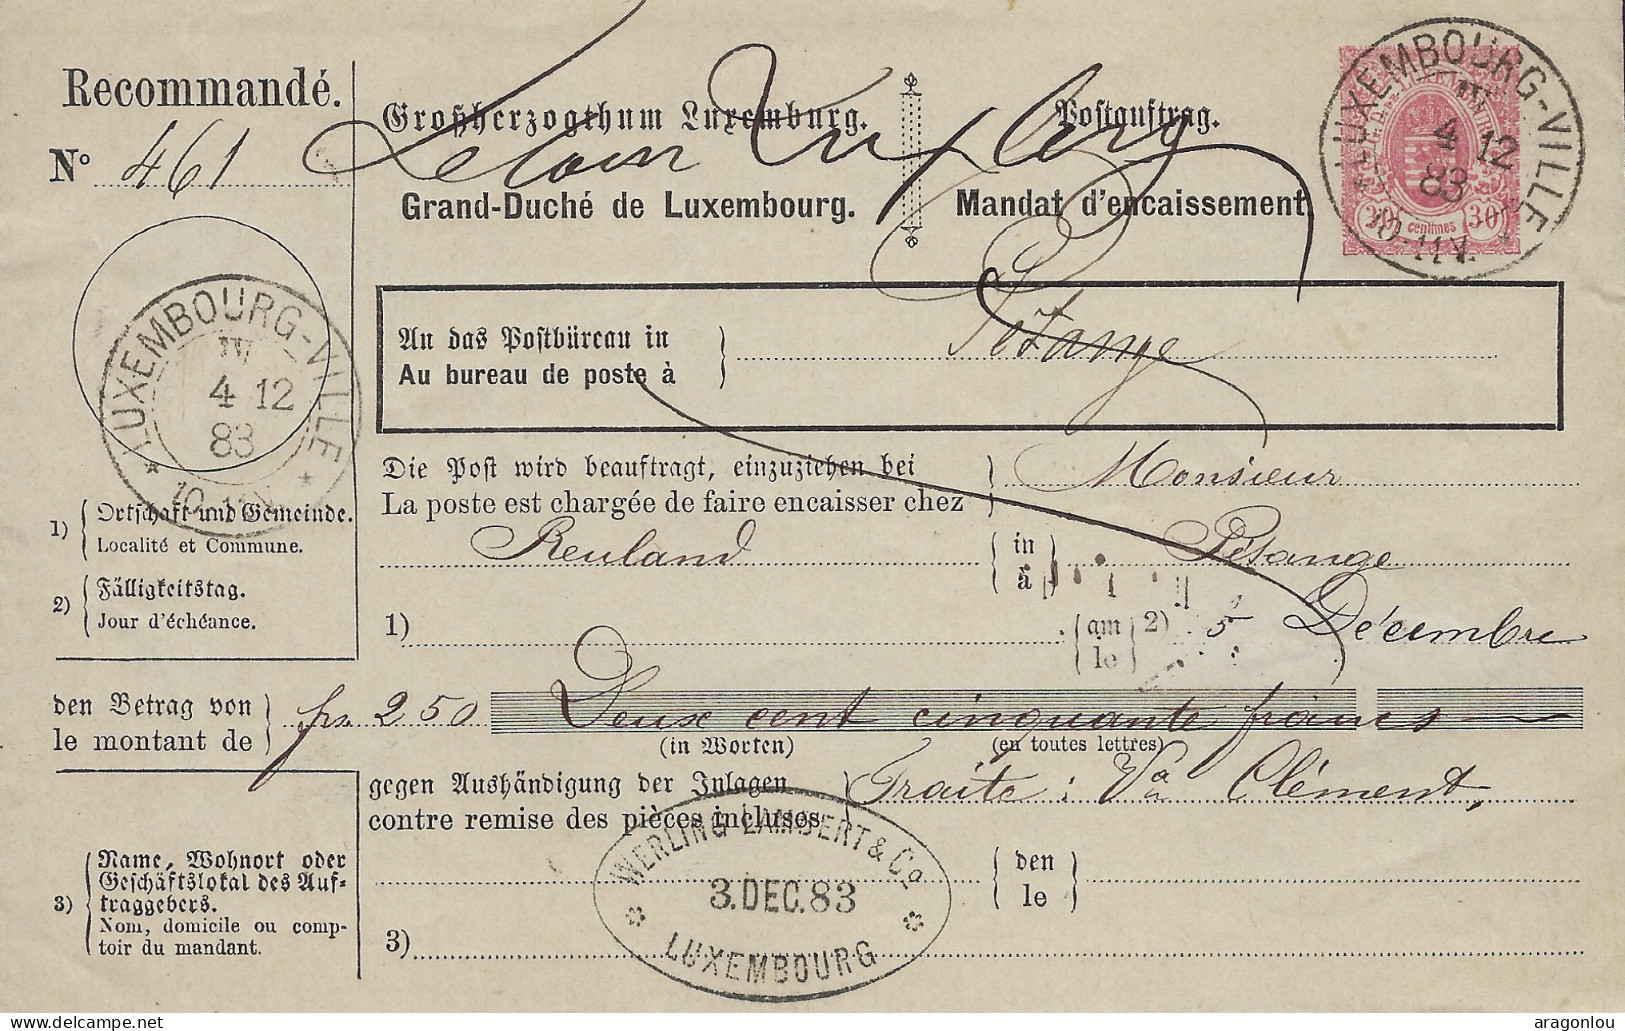 Recommandé.
Nº 461
Großherzogthum Luxemburg.
Postauftrag.
Grand-Duché de Luxembourg.
Mandat d'encaissement
LUXEMBOURG-VILLE
4 12
83
10-11 V.
30 centimes 30
An das Postbüreau in
Au bureau de poste à
Pétange
LUXEMBOURG-VILLE
4 12
83
10-11 V
Die Post wird beauftragt, einzuziehen bei
La poste est chargée de faire encaisser chez
Monsieur
Reuland
in
à
Pétange
1) Ortschaft und Gemeinde.
Localité et Commune.
2) Fälligkeitstag.
Jour d'échéance.
1)
am
le
2) 5 Décembre
den Betrag von
le montant de
frs 250 Deux cent cinquante francs
(in Worten) (en toutes lettres)
gegen Aushändigung der Inlagen
contre remise des pièces incluses
Traite: Va Clément,
WERLING LAMBERT & Co.
3. DEC. 83
LUXEMBOURG
den
le
3) Name, Wohnort oder
Geschäftslokal des Auf-
traggebers.
Nom, domicile ou comp-
toir du mandant.
3)
aragonlou